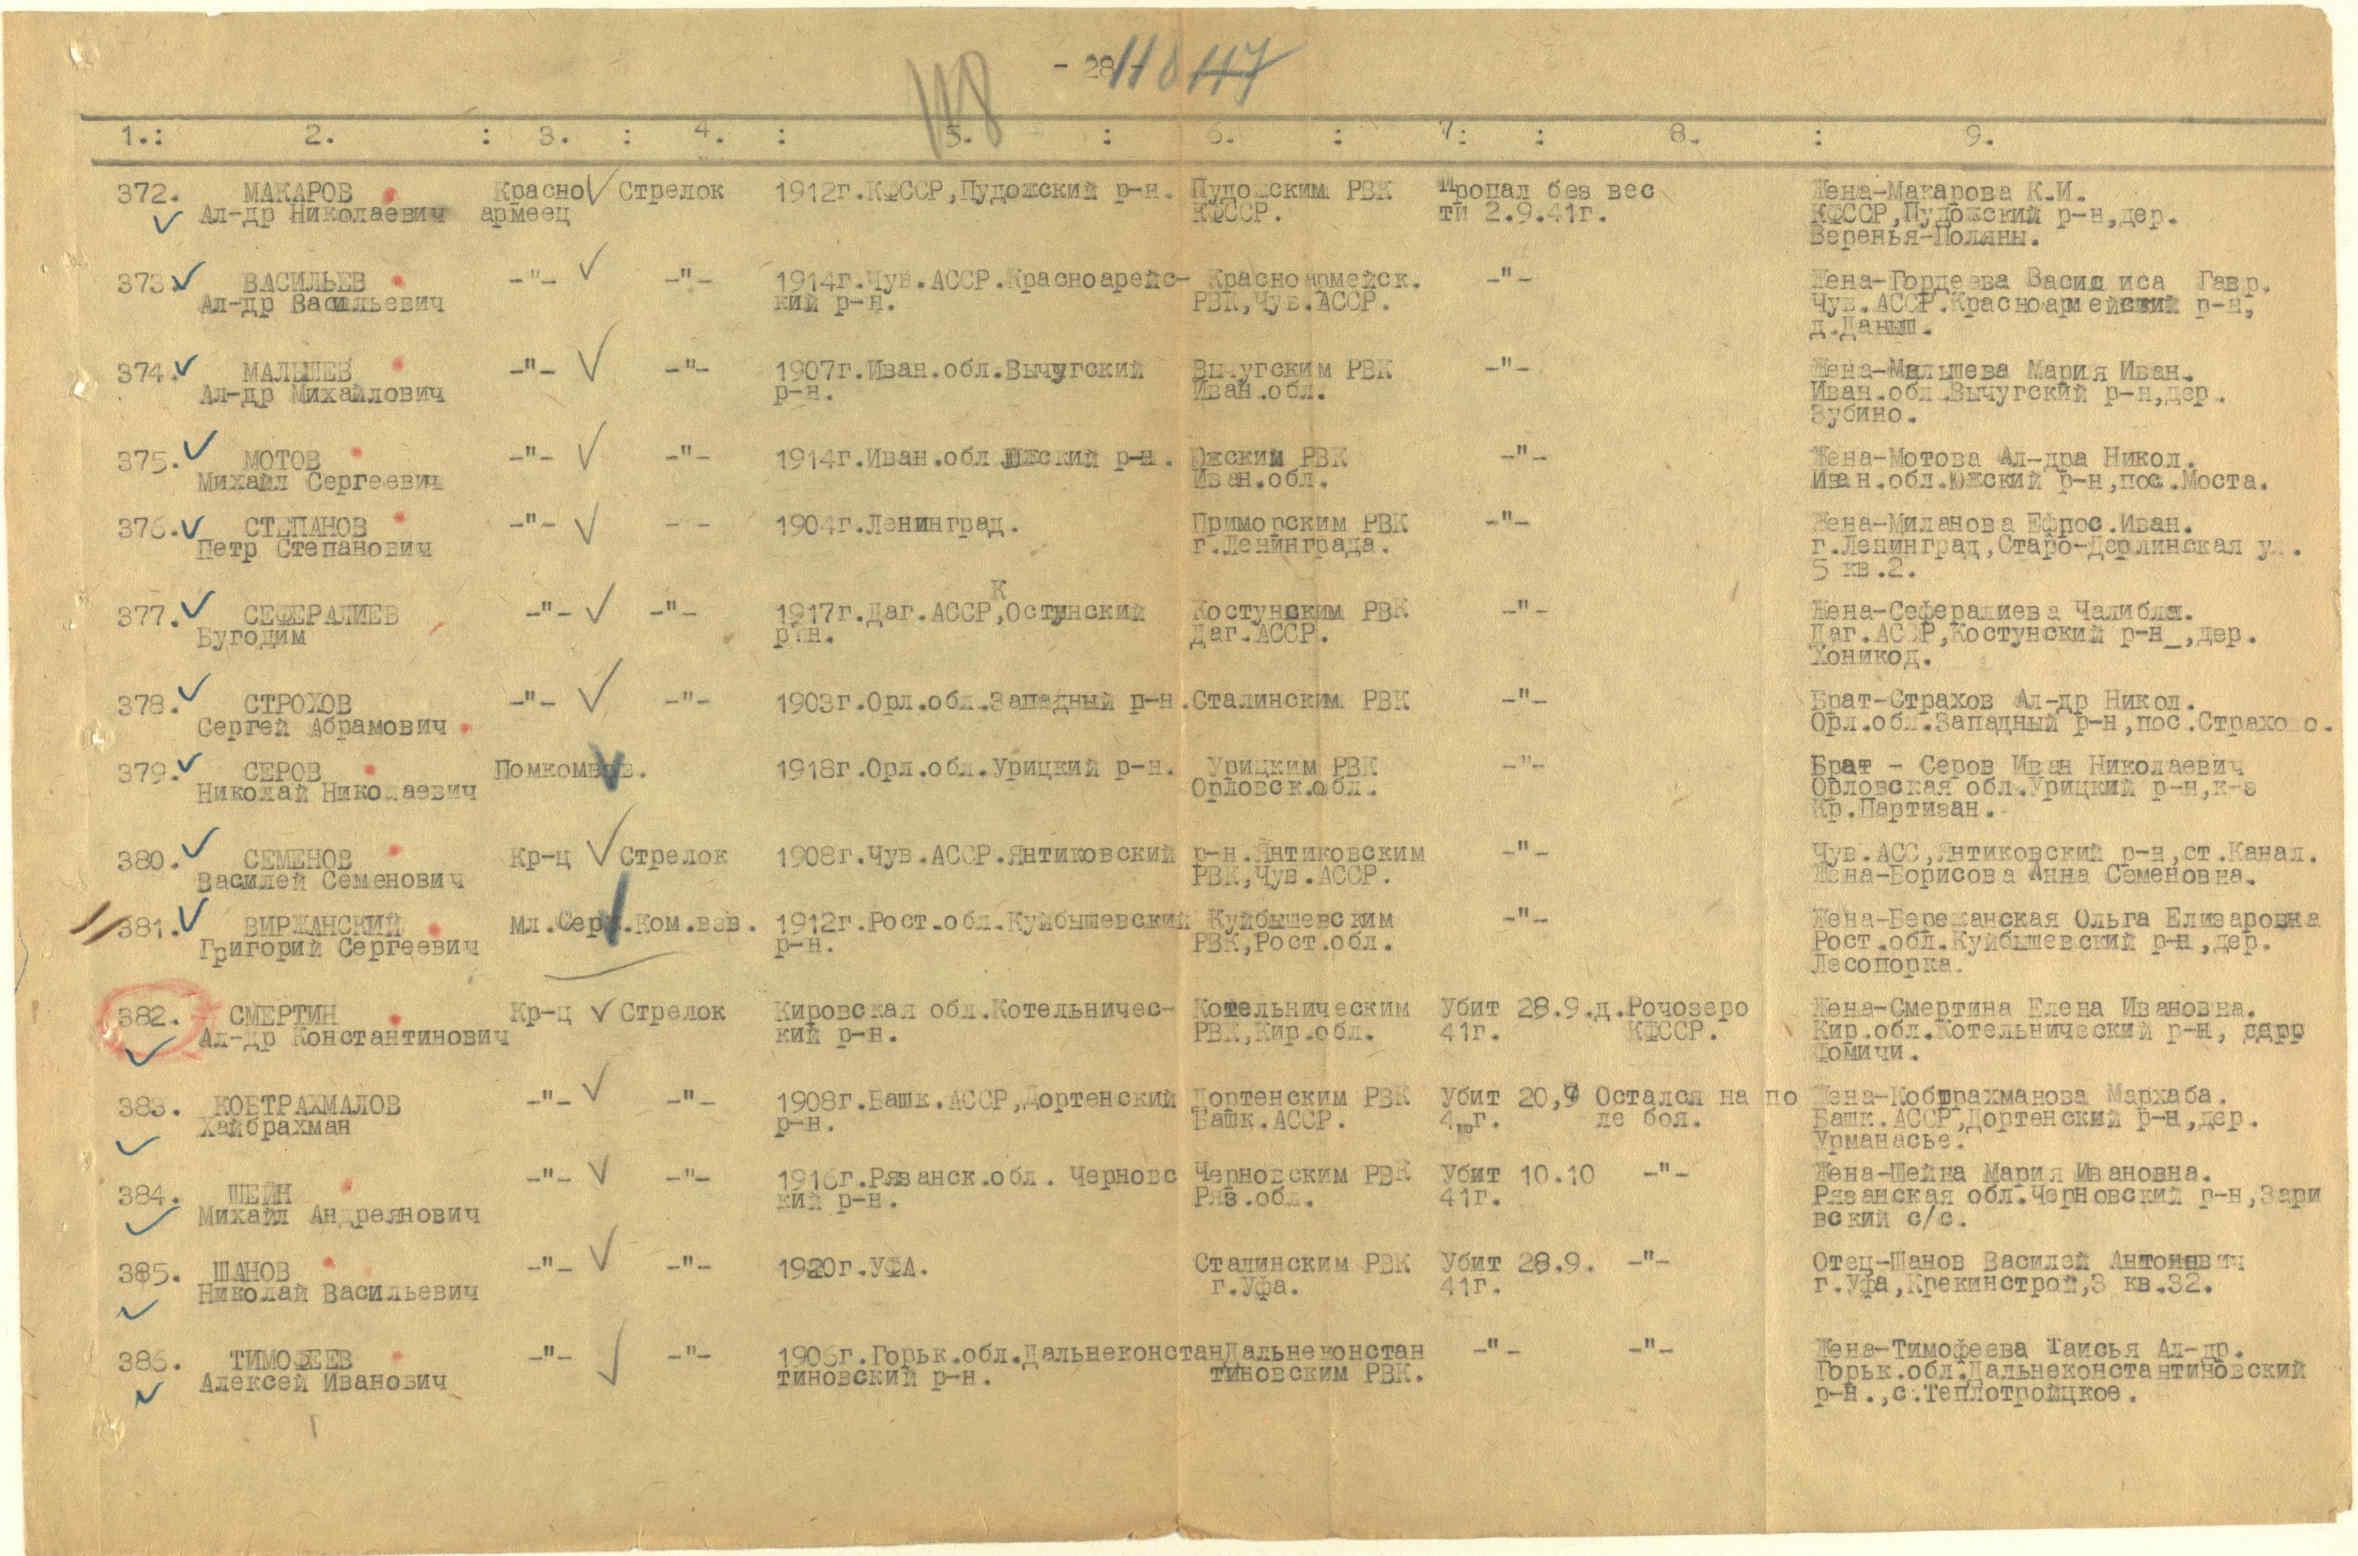 - 28 118 117
118
1.: 2. : 3. : 4. : 5. : 6. : 7: : 8. : 9.
372. МАКАРОВ Красно Стрелок 1912г.КФССР,Пудожский р-н. Пудожским РВК Пропал без вес Жена-Макарова К.И.
Ал-др Николаевич армеец КФССР. ти 2.9.41г. КФССР,Пудожский р-н,дер.
Веренья-Поляны.
373. ВАСИЛЬЕВ -"- -"- 1914г.Чув.АССР.Красноарейс- Красноармейск. -"- Жена-Гордеева Василиса Гавр.
Ал-др Васильевич кий р-н. РВК,Чув.АССР. Чув.АССР.Красноармейский р-н,
д.Даныш.
374. МАЛЫШЕВ -"- -"- 1907г.Иван.обл.Вычугский Вычугским РВК -"- Жена-Малышева Мария Иван.
Ал-др Михайлович р-н. Иван.обл. Иван.обл.Вычугский р-н,дер.
Зубино.
375. МОТОВ -"- -"- 1914г.Иван.обл.Южский р-н. Южский РВК -"- Жена-Мотова Ал-дра Никол.
Михайл Сергеевич Иван.обл. Иван.обл.Южский р-н,пос.Моста.
376. СТЕПАНОВ -"- - - 1904г.Ленинград. Приморским РВК -"- Жена-Миланова Ефрос.Иван.
Петр Степанович г.Ленинграда. г.Ленинград,Старо-Дерлинская ул.
5 кв.2.
377. СЕФЕРАЛИЕВ -"- -"- 1917г.Даг.АССР,Костунский Костунским РВК -"- Жена-Сефералиева Чалибля.
Бугодим р-н. Даг.АССР. Даг.АССР,Костунский р-н_,дер.
Хоникод.
378. СТРОХОВ -"- -"- 1903г.Орл.обл.Западный р-н. Сталинским РВК -"- Брат-Страхов Ал-др Никол.
Сергей Абрамович Орл.обл.Западный р-н,пос.Страхово.
379. СЕРОВ Помкомвзв. 1918г.Орл.обл.Урицкий р-н. Урицким РВК -"- Брат - Серов Иван Николаевич
Николай Николаевич Орловск.обл. Орловская обл.Урицкий р-н,к-з
Кр.Партизан.
380. СЕМЕНОВ Кр-ц Стрелок 1908г.Чув.АССР.Янтиковский р-н.Янтиковским -"- Чув.АСС,Янтиковский р-н,ст.Канал.
Василей Семенович РВК,Чув.АССР. Жена-Борисова Анна Семеновна.
381. ВИРЖАНСКИЙ Мл.Серж.Ком.взв. 1912г.Рост.обл.Куйбышевский Куйбышевским -"- Жена-Бережанская Ольга Елизаровна
Григорий Сергеевич р-н. РВК,Рост.обл. Рост.обл.Куйбышевский р-н,дер.
Лесопорка.
382. СМЕРТИН Кр-ц Стрелок Кировская обл.Котельничес- Котельническим Убит 28.9. д.Рочозеро Жена-Смертина Елена Ивановна.
Ал-др Константинович кий р-н. РВК,Кир.обл. 41г. КФССР. Кир.обл.Котельнический р-н,
Фомичи.
383. КОБТРАХМАЛОВ -"- -"- 1908г.Башк.АССР,Дортенский Дортенским РВК Убит 20,9 Остался на по Жена-Кобтрахманова Мархаба.
Хайбрахман р-н. Башк.АССР. 41г. ле боя. Башк.АССР,Дортенский р-н,дер.
Урманасье.
384. ШЕЙН -"- -"- 1916г.Рязанск.обл. Черновс Черновским РВК Убит 10.10 -"- Жена-Шейна Мария Ивановна.
Михайл Андреянович кий р-н. Ряз.обл. 41г. Рязанская обл.Черновский р-н,Зари
вский с/с.
385. ШАНОВ -"- -"- 1920г.УФА. Сталинским РВК Убит 28.9. -"- Отец-Шанов Василей Антонович
Николай Васильевич г.Уфа. 41г. г.Уфа,Крекинстрой,3 кв.32.
386. ТИМОФЕЕВ -"- -"- 1906г.Горьк.обл.Дальнеконстан Дальнеконстан -"- -"- Жена-Тимофеева Таисья Ал-др.
Алексей Иванович тиновский р-н. тиновским РВК. Горьк.обл.Дальнеконстантиновский
р-н.,с.Теплотройцкое.